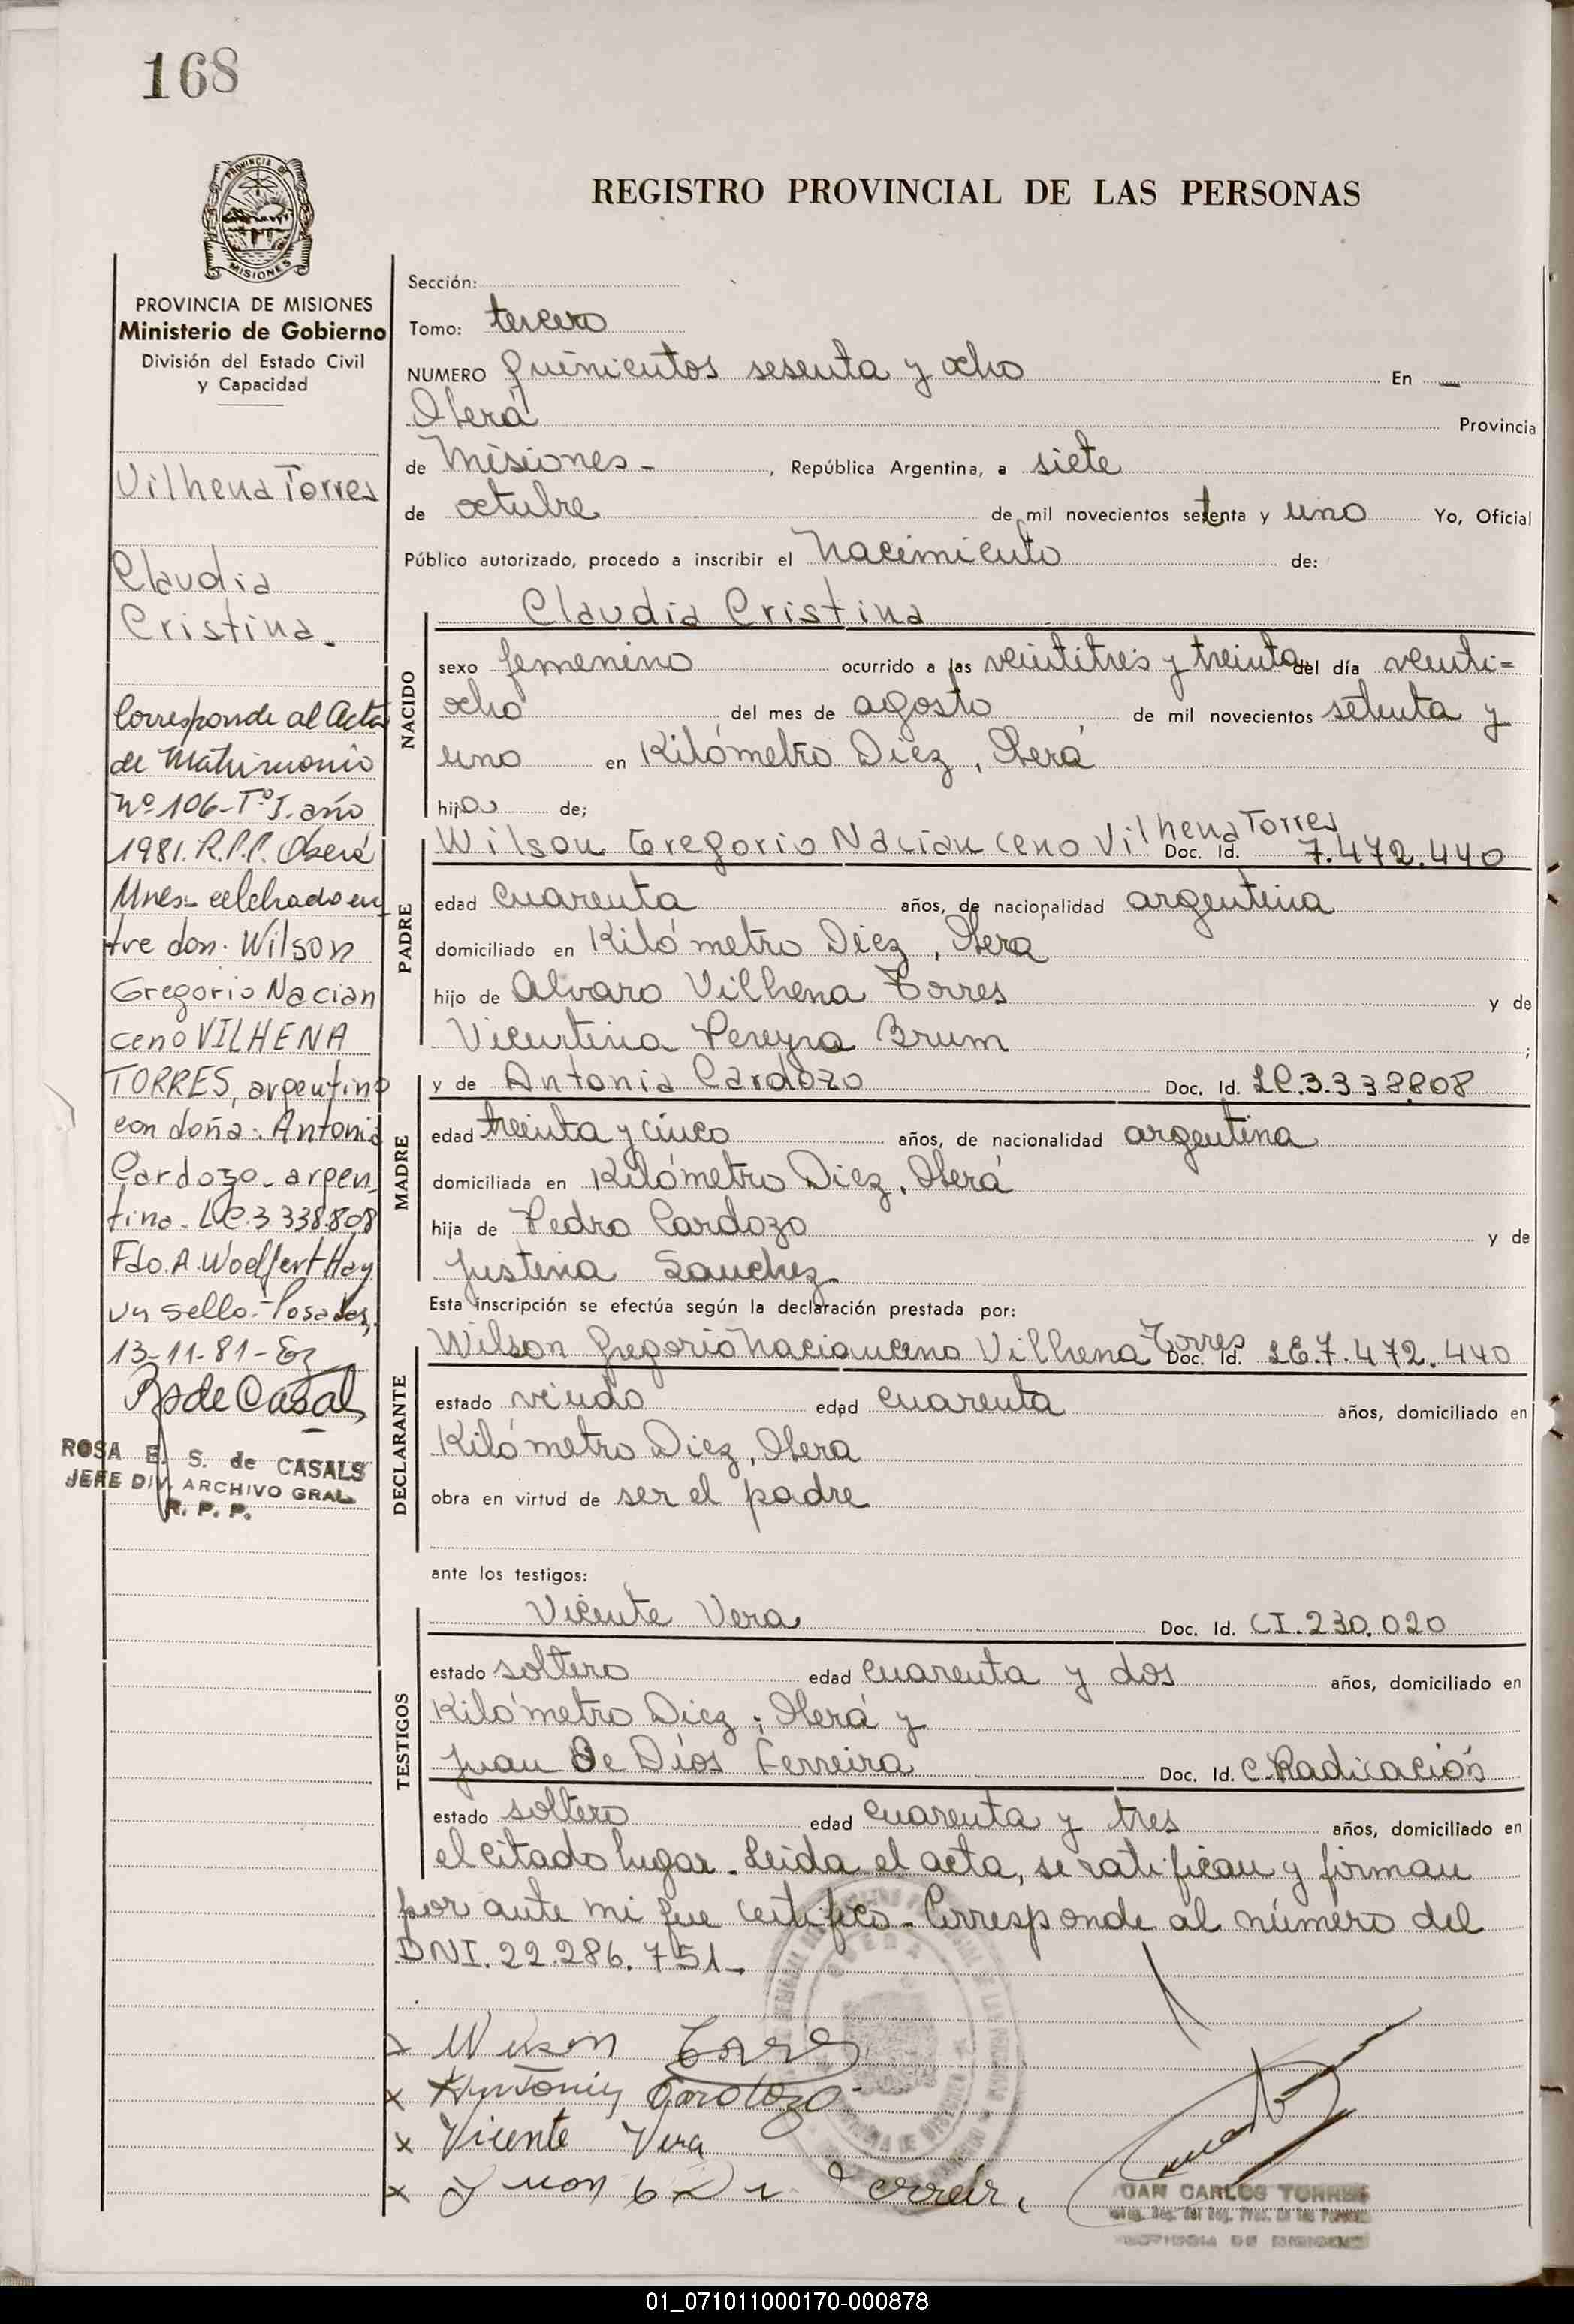 168
PROVINCIA DE
MISIONES
REGISTRO PROVINCIAL DE LAS PERSONAS
PROVINCIA DE MISIONES
Ministerio de Gobierno
División del Estado Civil
y Capacidad
Vilhena Torres
Claudia
Cristina.
Corresponde al Acta
de Matrimonio
Nº 106-TºI. año
1981. R.P.P. Oberá
Mnes.- celebrado en
tre don: Wilson
Gregorio Nacian
ceno VILHENA
TORRES, argentino
con doña: Antonia
Cardozo - argen
tina - LC.3.338.808
Fdo. A. Woelfert Hay
un sello.- Posadas,
13-11-81-
RSdeCasals
ROSA E. S. de CASALS
JEFE DIV. ARCHIVO GRAL.
R. P. P.
Sección:
Tomo: tercero
NUMERO quinientos sesenta y ocho En —
Oberá Provincia
de Misiones - , República Argentina, a siete
de octubre de mil novecientos setenta y uno Yo, Oficial
Público autorizado, procedo a inscribir el Nacimiento de:
NACIDO
Claudia Cristina
sexo femenino ocurrido a las veintitrés y treinta del día veinti=
ocho del mes de agosto de mil novecientos setenta y
uno en Kilómetro Diez, Oberá
hija de;
PADRE
Wilson Gregorio Nacianceno Vilhena Torres Doc. Id. 7.472.440
edad cuarenta años, de nacionalidad argentina
domiciliado en Kilómetro Diez, Oberá
hijo de Alvaro Vilhena Torres y de
Vicentina Pereyra Brum ;
MADRE
y de Antonia Cardozo Doc. Id. LC.3.338.808
edad treinta y cinco años, de nacionalidad argentina
domiciliada en Kilómetro Diez, Oberá
hija de Pedro Cardozo y de
Justina Sanchez
Esta inscripción se efectúa según la declaración prestada por:
DECLARANTE
Wilson Gregorio Nacianceno Vilhena Torres Doc. Id. LE.7.472.440
estado viudo edad cuarenta años, domiciliado en
Kilómetro Diez, Oberá
obra en virtud de ser el padre
ante los testigos:
TESTIGOS
Vicente Vera Doc. Id. CI.230.020
estado soltero edad cuarenta y dos años, domiciliado en
Kilómetro Diez, Oberá y
Juan De Dios Ferreira Doc. Id. C. Radicación
estado soltero edad cuarenta y tres años, domiciliado en
el citado lugar. Leida el acta, se ratifican y firman
por ante mi que certifico - Corresponde al número del
DNI. 22.286.751-
x Wilson Torres
x Antonia Cardozo
x Vicente Vera
x Juan
JUAN CARLOS TORRES
01_071011000170-000878